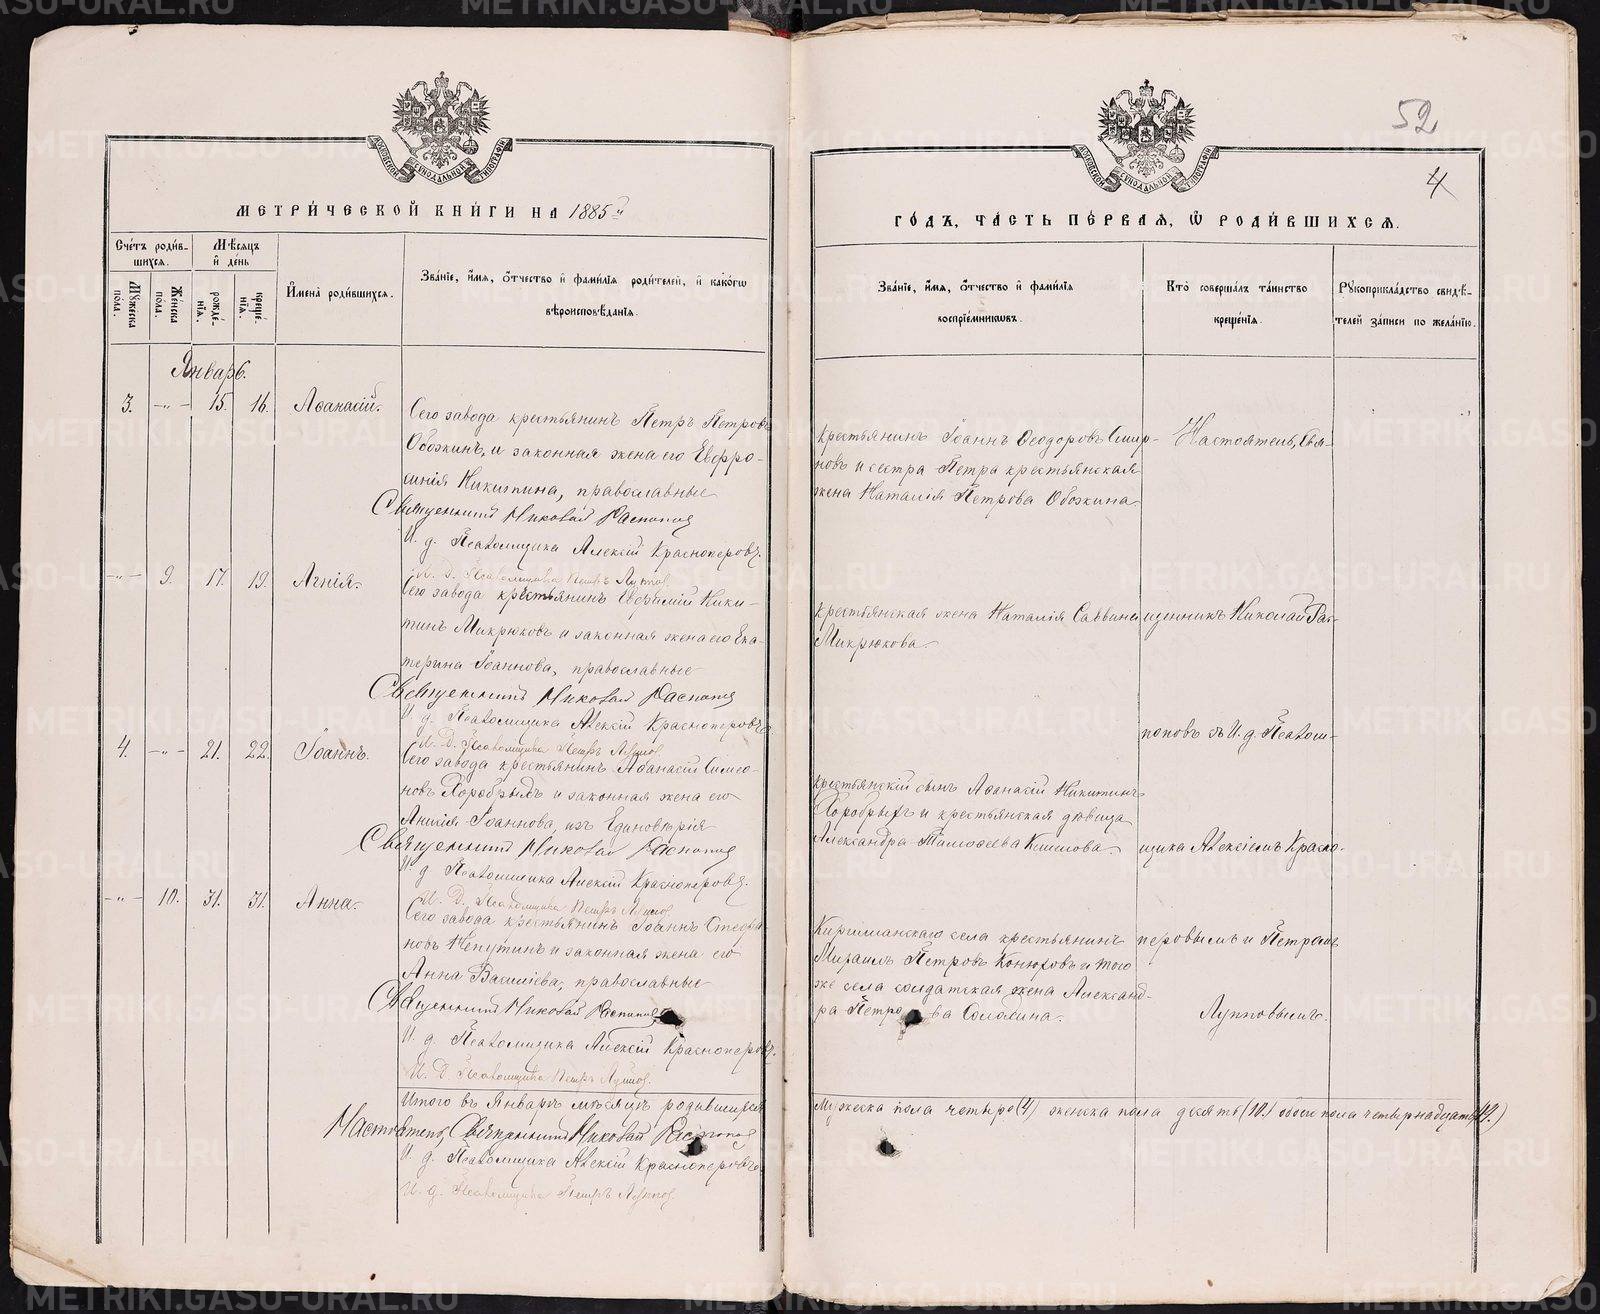 МОСКОВСКОЙ СѴНОДАЛЬНОЙ ТИПОГРАФІИ
МЕТРИ́ЧЕСКОЙ КНИ́ГИ НА 1885й
Сче́тъ роди́в-
шихсѧ.
Мѣ́сѧцъ
и҆ де́нь
Му́жеска
по́ла.
Же́нска
по́ла.
рожде́-
нїѧ.
креще́-
нїѧ.
И҆мена̀ роди́вшихсѧ.
Зва́нїе, и҆́мѧ, ѻ҆́тчество и҆ фами́лїѧ роди́телей, и҆ како́гѡ
вѣроисповѣ́данїѧ.
Январь.
3. -"- 15. 16. Аѳанасій.
Сего завода крестьянинъ Петръ Петровъ
Обожинъ, и законная жена его Евфро-
синія Никитина, православные
Священникъ Николай Распоповъ
И. д. Псаломщика Алексій Красноперовъ.
И. Д. Псаломщика Петръ Лупповъ.
-"- 9. 17. 19. Агнія.
Сего завода крестьянинъ Евфимій Ники-
тинъ Микрюковъ и законная жена его Ека-
терина Іоаннова, православные
Священникъ Николай Распоповъ
И. д. Псаломщика Алексій Красноперовъ
И. Д. Псаломщика Петръ Лупповъ
4. -"- 21. 22. Іоаннъ.
Сего завода крестьянинъ Аѳанасій Симео-
новъ Хоробрыхъ и законная жена его
Анисія Іоаннова, изъ Единовѣрія
Священникъ Николай Распоповъ
И. д Псаломщика Алексій Красноперовъ.
И. Д. Псаломщика Петръ Лупповъ.
-"- 10. 31. 31. Анна.
Сего завода крестьянинъ Іоаннъ Стефа-
новъ Чепутинъ и законная жена его
Анна Василіева, православные
Священникъ Николай Распоповъ
И. д. Псаломщика Алексій Красноперовъ.
И. Д. Псаломщика Петръ Лупповъ.
Итого въ Январѣ мѣсяцѣ родившихся
Настоятель, Священникъ Николай Распоповъ
И. д. Псаломщика Алексій Красноперовъ
И. д. Псаломщика Петръ Лупповъ
52
4
МОСКОВСКОЙ СѴНОДАЛЬНОЙ ТИПОГРАФІИ
ГО́ДЪ, ЧА́СТЬ ПЕ́РВАѦ, Ѡ҆ РОДИ́ВШИХСѦ.
Зва́нїе, и҆́мѧ, ѻ҆́тчество и҆ фами́лїѧ
воспрїе́мникѡвъ.
Кто̀ соверша́лъ та́инство
креще́нїѧ.
Рꙋкоприкла́дство свидѣ́-
телей за́писи по жела́нїю.
Крестьянинъ Іоаннъ Ѳеодоровъ Смир-
новъ и сестра Петра крестьянская
жена Наталія Петрова Обожина.
Крестьянская жена Наталія Саввина
Микрюкова
Крестьянскій сынъ Аѳанасій Никитинъ
Хоробрыхъ и крестьянская дѣвица
Александра Тимоѳеева
села крестьянинъ
Михаилъ Петровъ Конюховъ и того
же села солдатская жена Александ-
ра Петрова Соломина.
Настоятель, Свя-
щенникъ Николай Рас-
поповъ съ И. д. Псалом-
щика Алексіемъ Красно-
перовымъ и Петромъ
Лупповымъ.
Мужеска пола четыре (4) женска пола десять (10.) обоего пола четырнадцать (14.)
METRIKI.GASO-URAL.RU